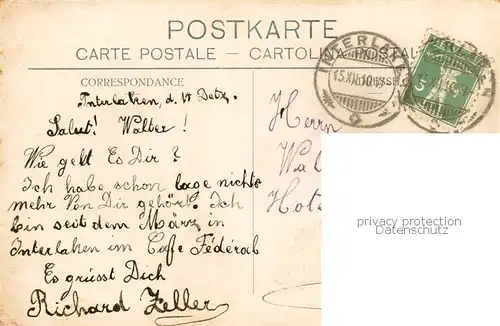 POSTKARTE
CARTE POSTALE — CARTOLINA POSTALE
CORRESPONDANCE
Interlaken, d.
Salut! Walter!
Wie gelt Es Dir?
Ich habe schon lage nichts
mehr Von Dir gehört. Ich
bin seit dem März in
Interlaken im Cafe Fédéral
Es grüsst Dich
Richard Zeller
INTERLAKEN
15.XII.10.
5
Herrn
privacy protection
Datenschutz